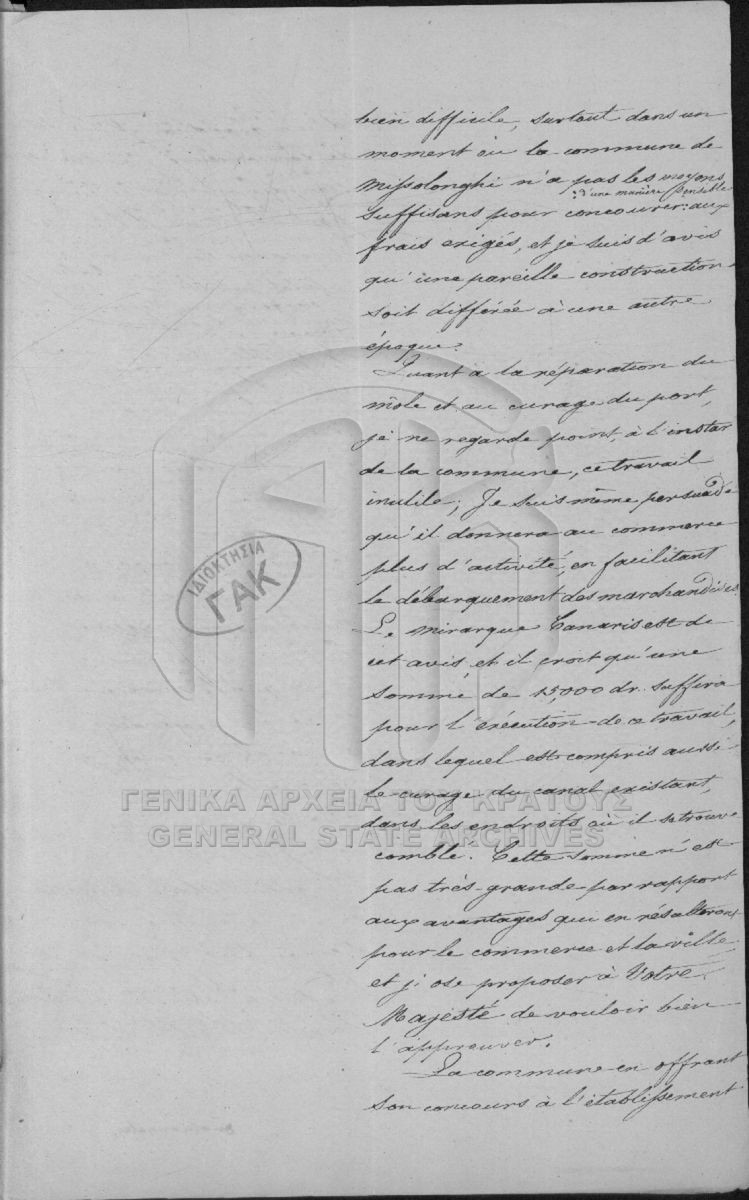 bien difficile, surtout dans un
moment où la commune de
Missolonghi n'a pas les moyens
: d'une manière sensible
suffisans pour concourrer : aux
frais exigés, et je suis d'avis
qu'une pareille construction
soit différée à une autre
époque.
Quant à la réparation du
môle et au curage du port,
je ne regarde point à l'instar
de la commune, ce travail
inutile; Je suis même persuadé
qu'il donnera au commerce
plus d'activité, en facilitant
le débarquement des marchandises.
Le mirarque Canaris est de
cet avis et il croit qu'une
somme de 15,000 dr. suffira
pour l'exécution de ce travail,
dans lequel est compris aussi
le curage du canal existant,
dans les endroits où il se trouve
comblé. Cette somme n'est
pas très grande par rapport
aux avantages qui en résulteront
pour le commerce et la ville
et j'ose proposer à Votre
Majesté de vouloir bien
l'approuver.
La commune en offrant
son concours à l'établissement
ΙΔΙΟΚΤΗΣΙΑ
ΓΑΚ
ΓΕΝΙΚΑ ΑΡΧΕΙΑ ΤΟΥ ΚΡΑΤΟΥΣ
GENERAL STATE ARCHIVES